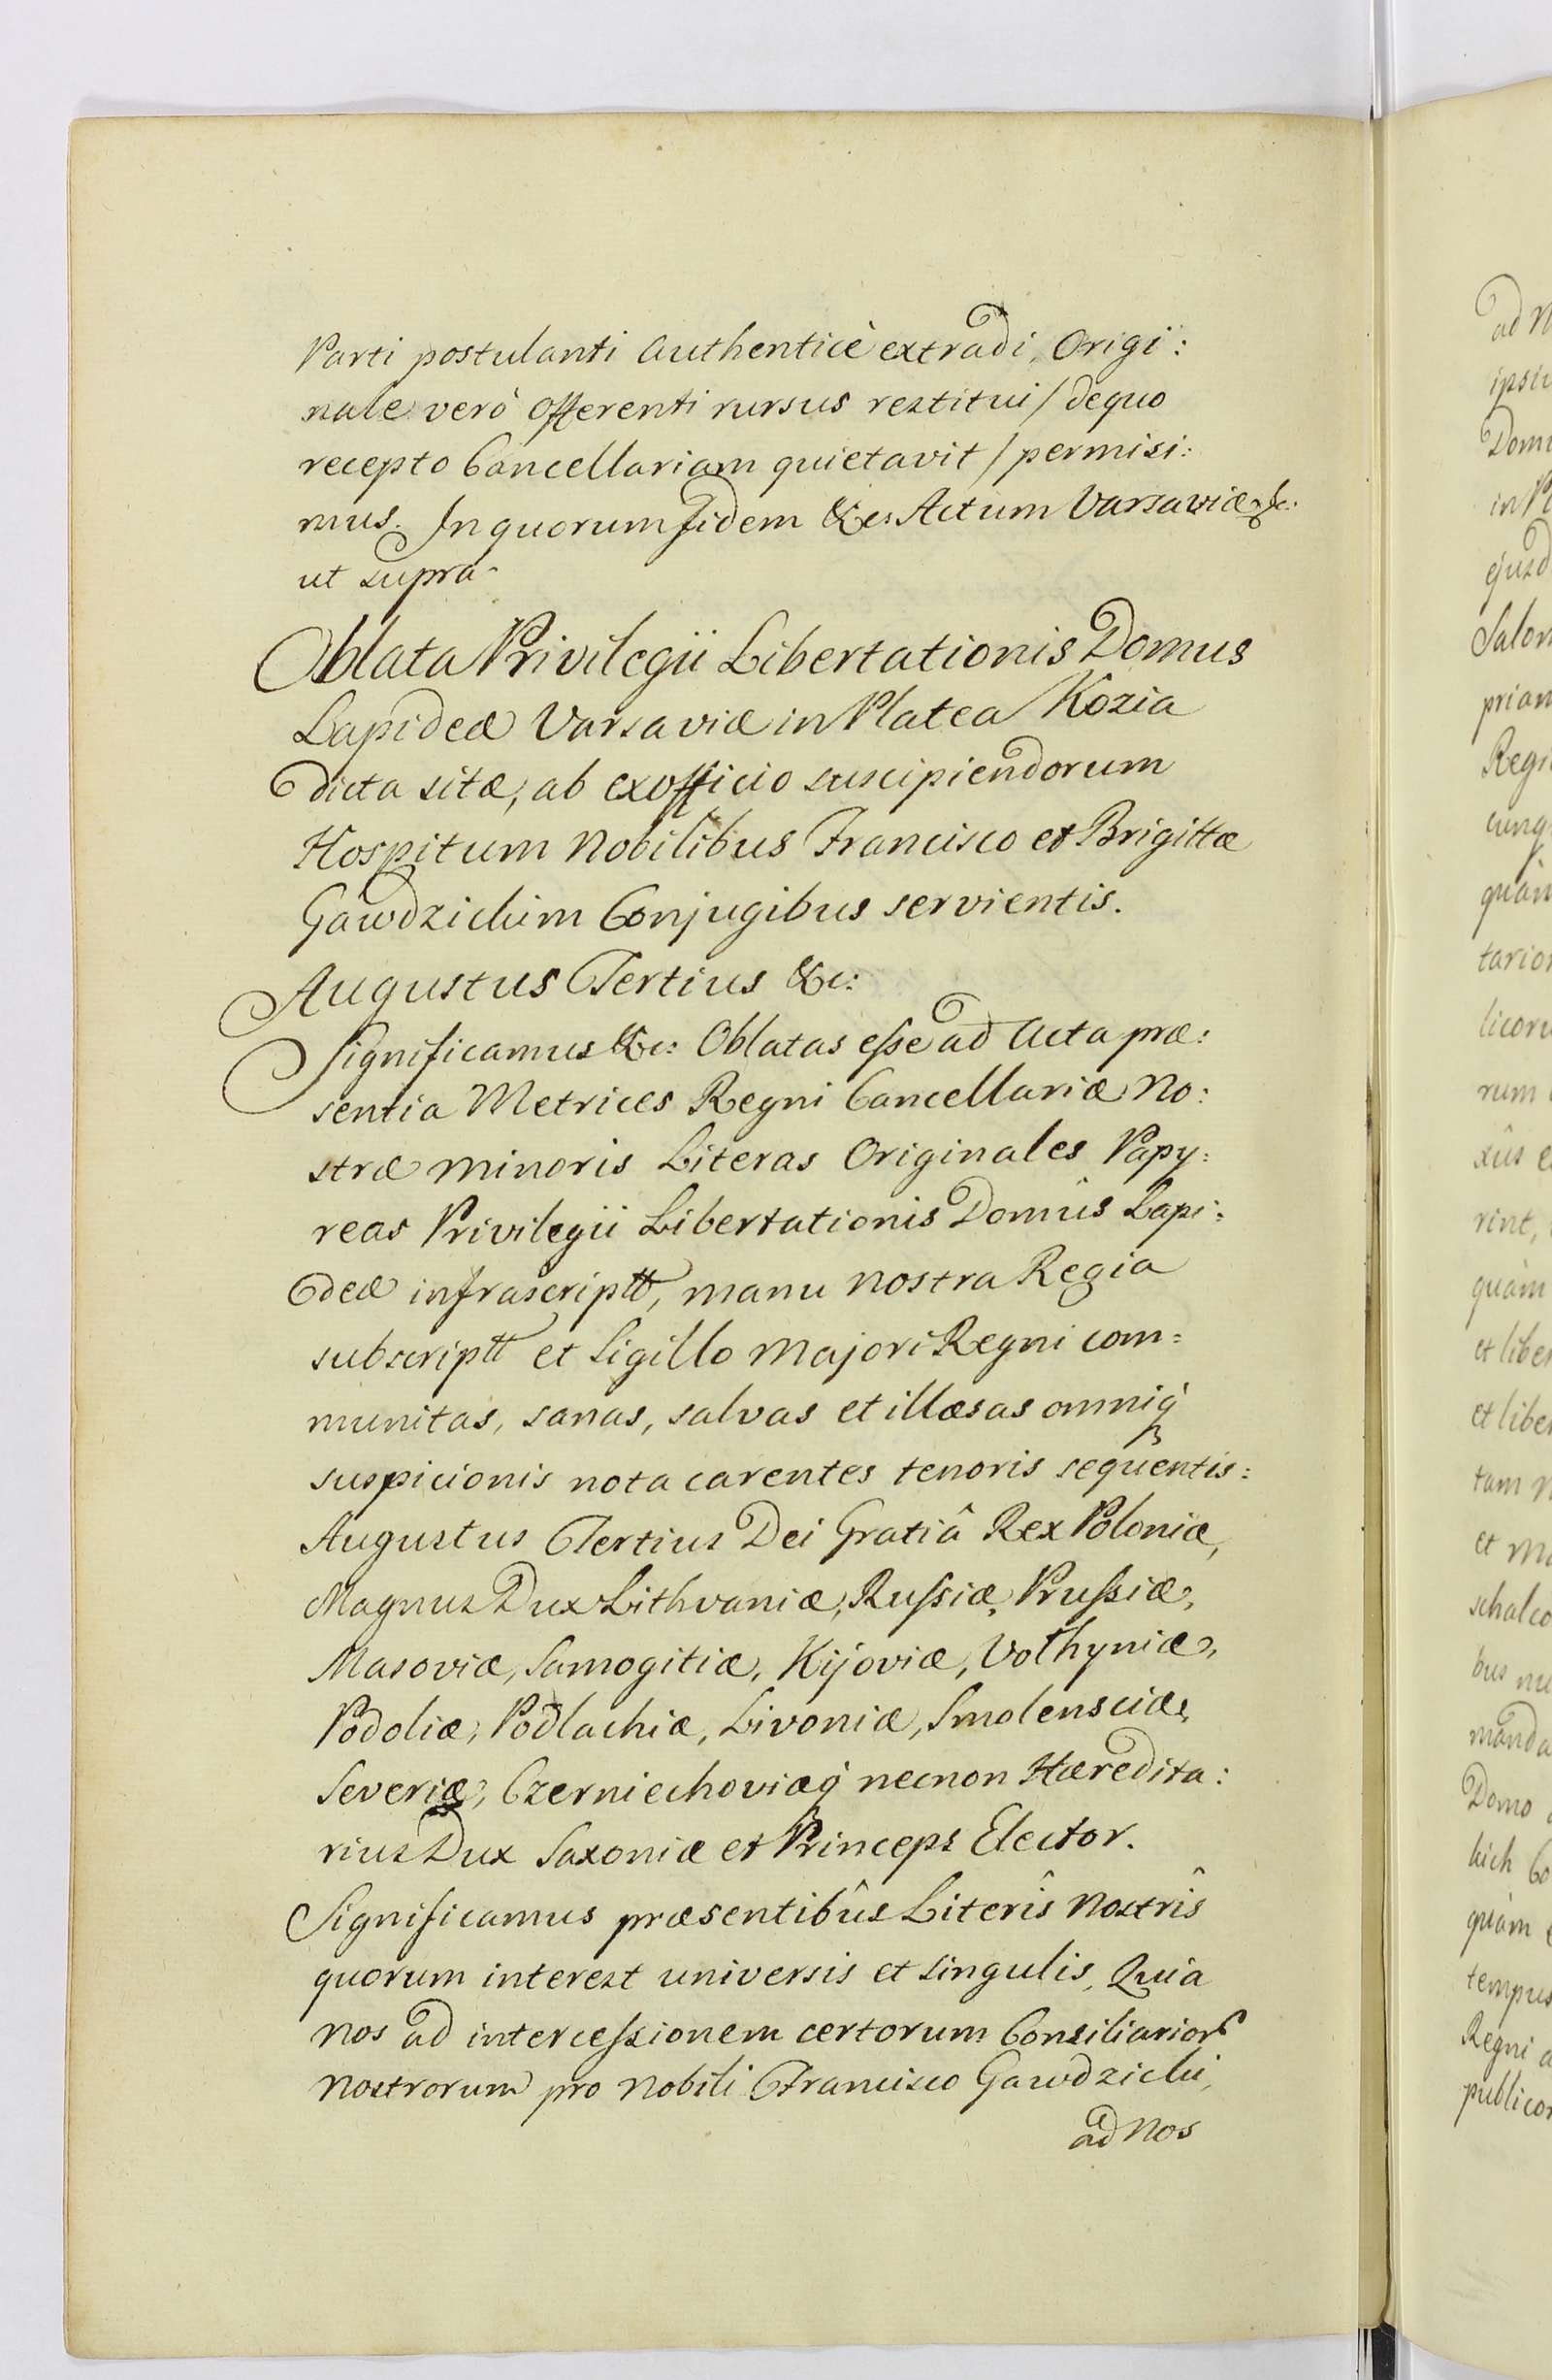 Parti postulanti authenticè extradi, Origi:
nale verò offerenti rursus restitui / de quo
recepto Cancellariam quietavit / permisi:
mus. In quorum fidem &c: Actum Varsaviæ &c:
ut supra
Oblata Privilegii Libertationis Domus
Lapideæ Varsaviæ in Platea Kozia
dicta sitæ, ab ex officio suscipiendorum
Hospitum Nobilibus Francisco et Brigittæ
Gawdzickim Conjugibus servientis.
Augustus Tertius &c:
Significamus &c: Oblatas esse ad Acta præ:
sentia Metrices Regni Cancellariæ No:
stræ minoris Literas Originales Papy:
reas Privilegii Libertationis Domûs Lapi:
deæ infrascriptt, manu nostra Regia
subscriptt et Sigillo Majori Regni com:
munitas, sanas, salvas et illæsas omniq
suspicionis nota carentes tenoris sequentis:
Augustus Tertius Dei Gratiâ Rex Poloniæ,
Magnus Dux Lithvaniæ, Russiæ, Prussiæ,
Masoviæ, Samogitiæ, Kijoviæ, Volhyniæ,
Podoliæ, Podlachiæ, Livoniæ, Smolensciæ,
Severiæ, Czerniechoviæq necnon Hæredita:
rius Dux Saxoniæ et Princeps Elector.
Significamus præsentibûs Literîs Nostrîs
quorum interest universis et singulis, Quia
nos ad intercessionem certorum Consiliarior
nostrorum pro Nobili Francisco Gawdzicki,
ad nos
ad N
ipsiu
Domu
in Pl
ejusd
Salom
prian
Regi
cunq
quàm
tarior
licoru
rum
xûs e
rint,
quàm
et liber
et liber
tam n
et Ma
schalco
bus
manda
Domo
kich Co
quàm
tempus
Regni a
publicor